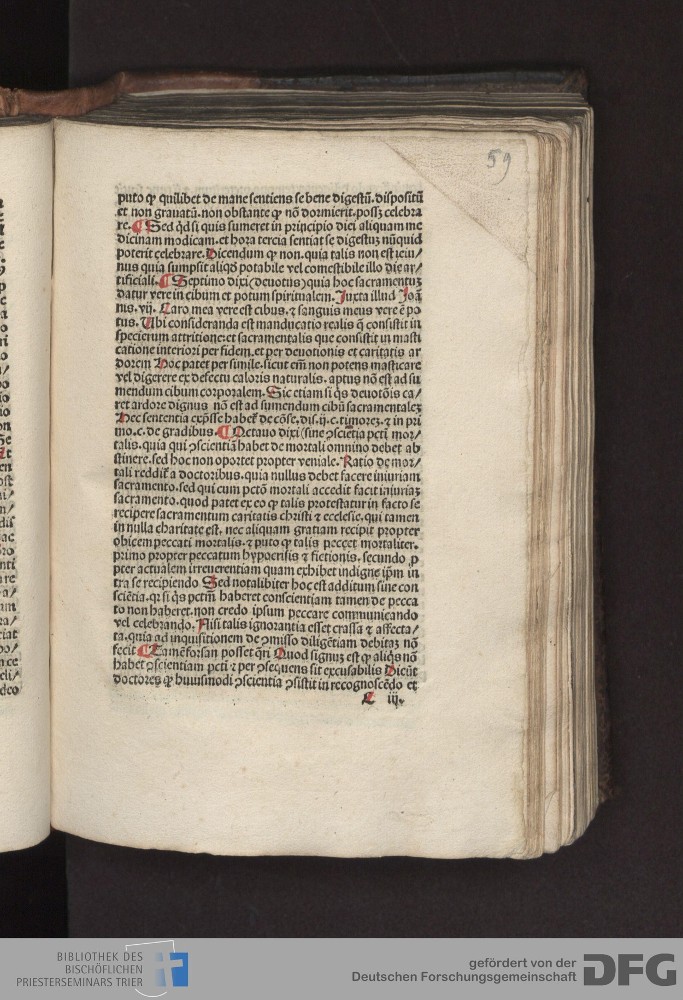 59
puto ꝙ quilibet de mane sentiens se bene digestū. dispositū
et non grauatū. non obstante ꝙ nō dormierit. possꝫ celebra
re. ¶ Sed qd si quis sumeret in principio diei aliquam me
dicinam modicam. et hora tercia sentiat se digestuꝫ nūquid
poterit celebrare. Dicendum ꝙ non. quia talis non est ieiu/
nus quia sumpsit aliqd potabile vel comestibile illo die ar/
tificiali. ¶ Septimo dixi (deuotus) quia hoc sacramentuꝫ
datur vere in cibum et potum spiritualem. Juxta illud Joā
nis. vij. Caro mea vere est cibus. ⁊ sanguis meus vere ē po
tus. Ubi consideranda est manducatio realis q̄ consistit in
specierum attritione: et sacramentalis que consistit in masti
catione interiori per fidem. et per deuotionis et caritatis ar
dorem Hoc patet per simile. sicut em̄ non potens masticare
vel digerere ex defectu caloris naturalis. aptus nō est ad su
mendum cibum corporalem. Sic etiam si qs deuotōis ca/
ret ardore dignus nō est ad sumendum cibū sacramentaleꝫ
Hec sententia exp̄sse habet᷑ de cōse. dis. ij. c. timoreꝫ. ⁊ in pri
mo. c. de gradibus. ¶ Octauo dixi (sine ꝯscientia pcti mor/
talis. quia qui ꝯscientiā habet de mortali omnino debet ab
stinere. sed hoc non oportet propter veniale. Ratio de mor/
tali reddit᷑ a doctoribus. quia nullus debet facere iniuriam
sacramento. sed qui cum pctō mortali accedit facit iniuriaꝫ
sacramento. quod patet ex eo ꝙ talis protestatur in facto se
recipere sacramentum caritatis christi ⁊ ecclesie. qui tamen
in nulla charitate est. nec aliquam gratiam recipit propter
obicem peccati mortalis. ⁊ puto ꝙ talis peccet mortaliter.
primo propter peccatum hypocrisis ⁊ fictionis. secundo ꝓ
pter actualem irreuerentiam quam exhibet indigne ip̄m in
tra se recipiendo Sed notabilibiter hoc est additum sine con
sciētia. qꝛ si qs pctm̄ haberet conscientiam tamen de pecca
to non haberet. non credo ipsum peccare communicando
vel celebrando. Nisi talis ignorantia esset crassa ⁊ affecta/
ta. quia ad inquisitionem de ꝯmisso diligētiam debitaꝫ nō
fecit ¶ Tamē forsan posset q̄ri Quod signuꝫ est ꝙ aliqs nō
habet ꝯscientiam pcti ⁊ per ꝯsequens sit excusabilis Dicūt
doctores ꝙ huiusmodi ꝯscientia ꝯsistit in recognoscēdo et
C iij.
BIBLIOTHEK DES
BISCHÖFLICHEN
PRIESTERSEMINARS TRIER
gefördert von der
Deutschen Forschungsgemeinschaft
DFG